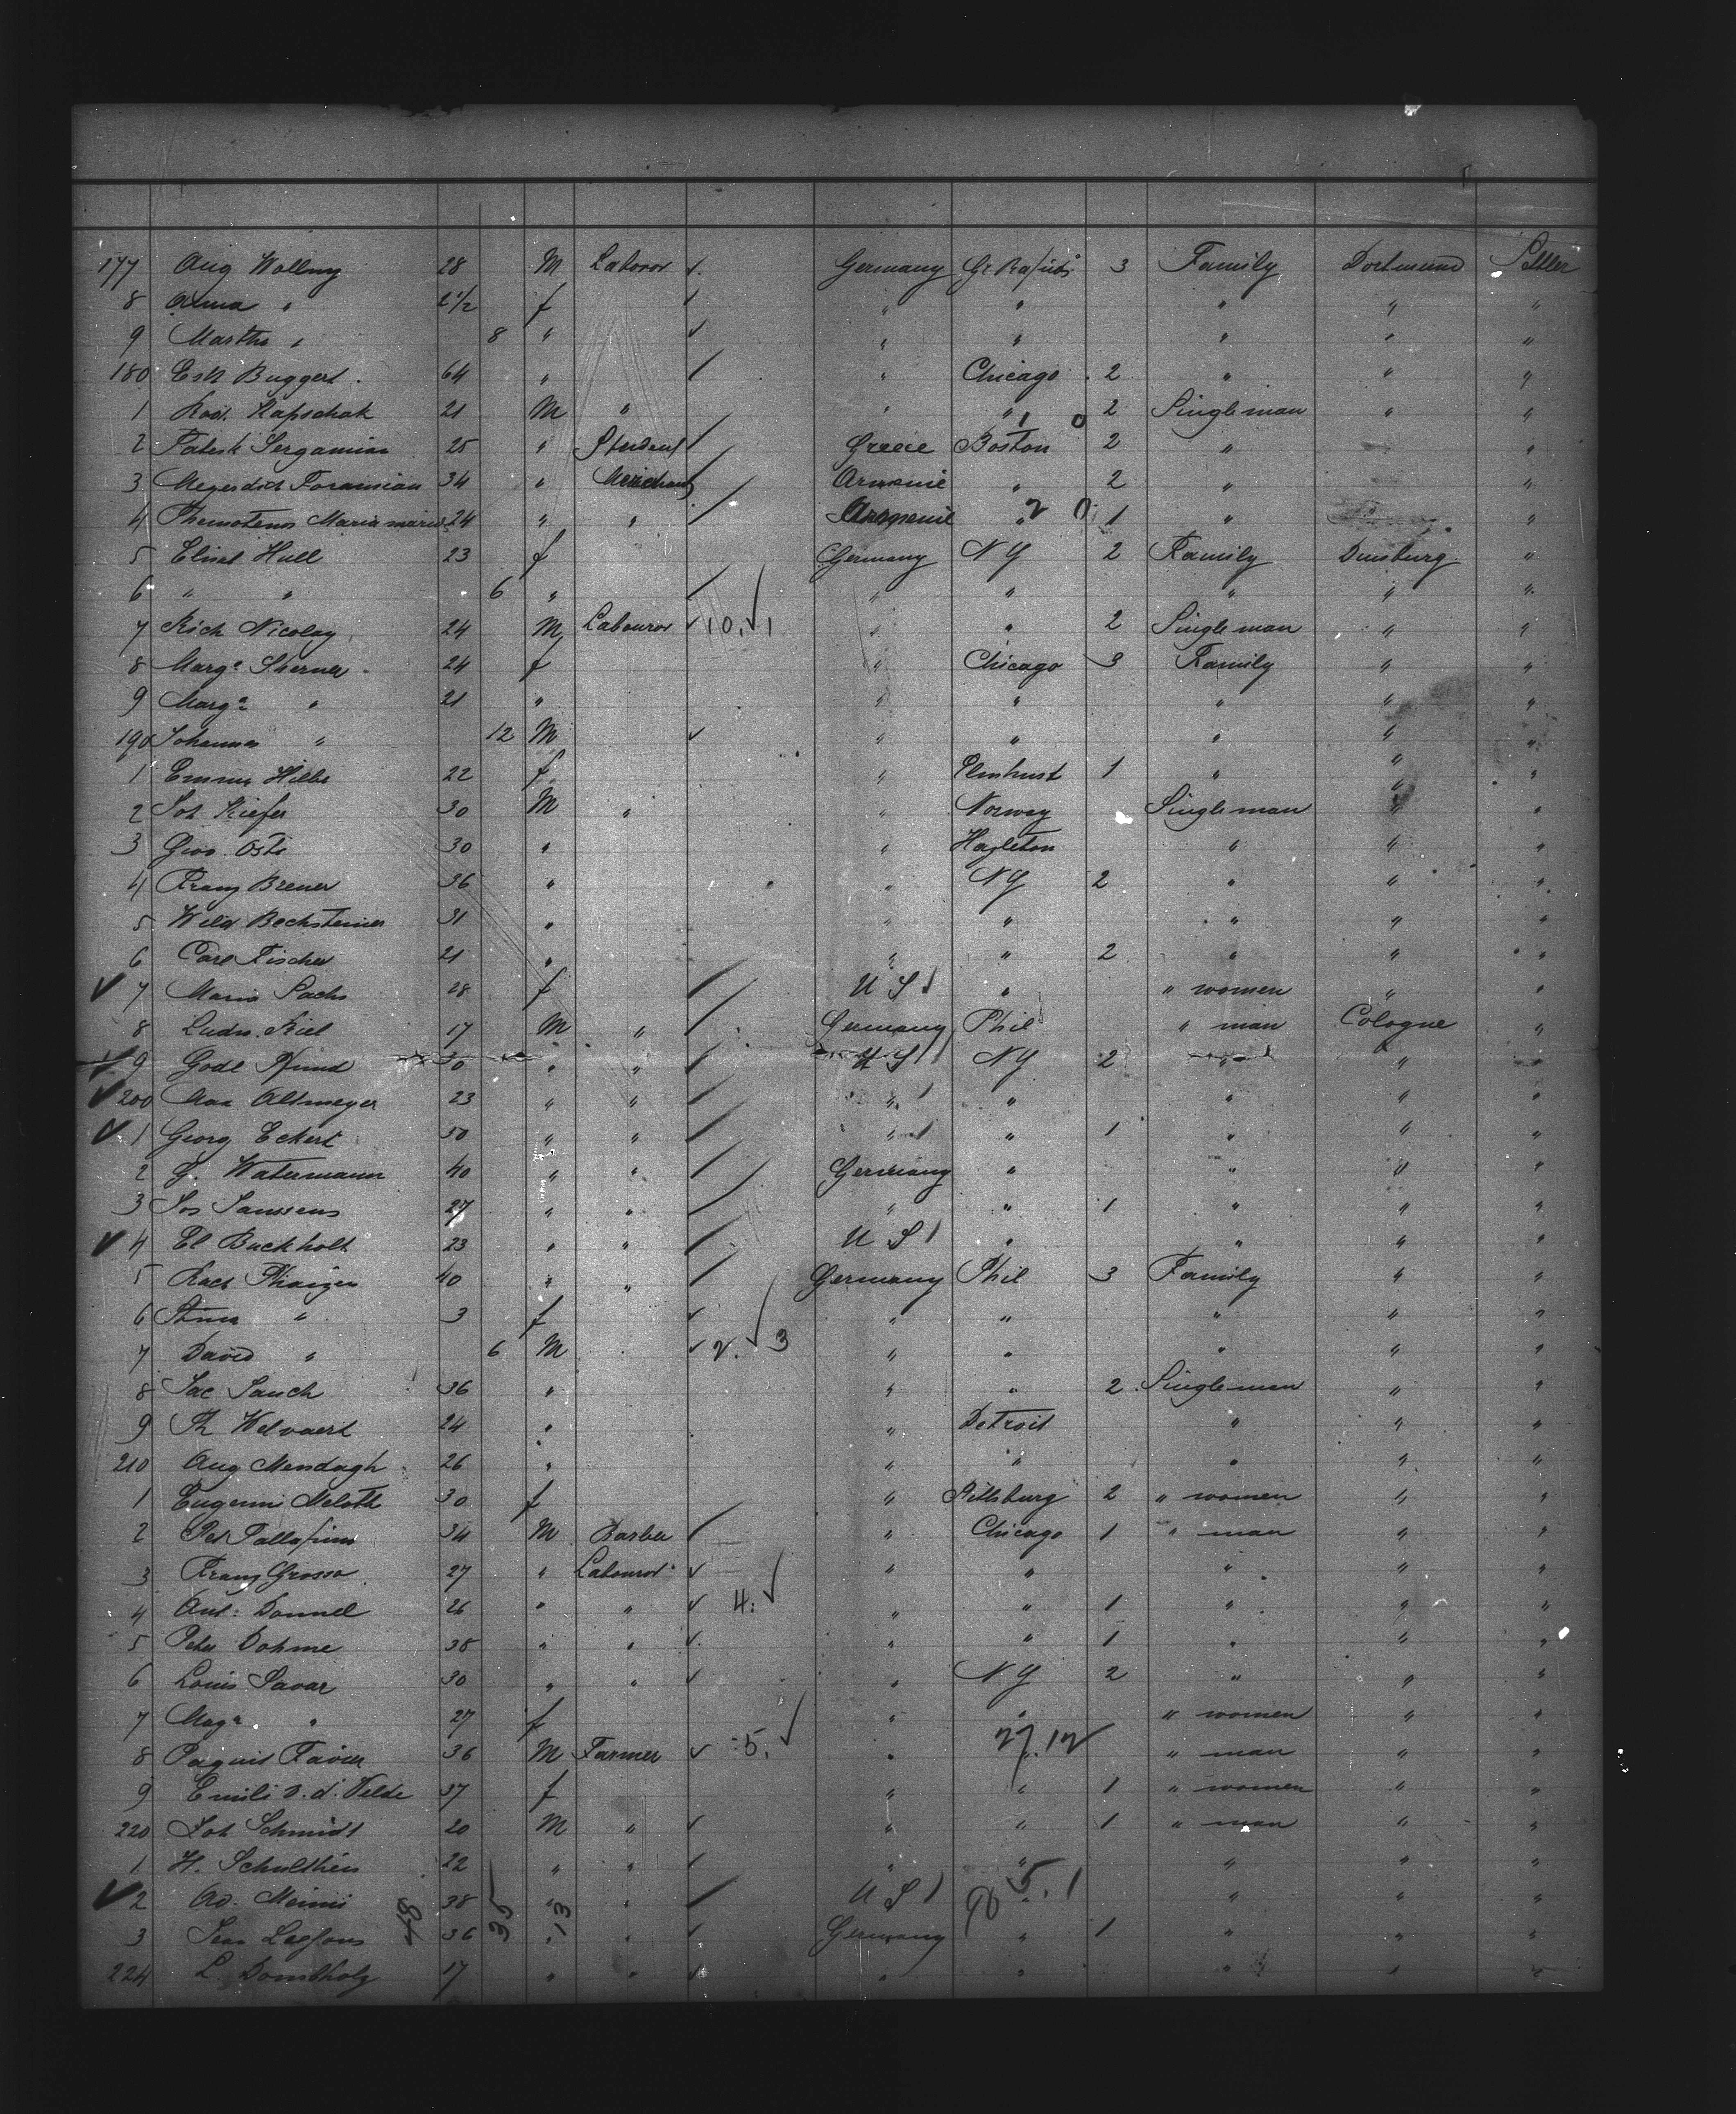 177 Aug Wollny 28 M Laboror Germany Gr Rapids 3 Family Dortmund Settler
8 Alma " 2 1/2 f " " " " "
9 Martha " 8 " " " " " "
180 Esth Buggert 64 " " Chicago 2 " " "
1 Kapschak 21 M " " " 2 Single man " "
2 Sergamian 25 " Student Greece Boston 2 " "
3 Megerdich Foramian 34 " Merchant Armenie " 2 " "
4 24 " " Armenie " 1 "
5 Eliset Hull 23 f Germany NY 2 Family Duisburg "
6 " " 6 " " " " " "
7 Rich Nicolay 24 M Labouror 10. 1 " " 2 Single man " "
8 Marga Sherner 24 f " Chicago 3 Family " "
9 Marga " 21 " " " " " "
190 Johannes " 12 M " " " " "
1 Emma Hilbe 22 f " Elmhurst 1 " " "
2 Joh Kiefer 30 M " " Norway Single man " "
3 Giov. Osti 30 " " Hazleton " " "
4 Franz Brener 36 " " NY 2 " " "
5 Wild Bechsteiner 31 " " " " " "
6 Carl Fischer 21 " " " 2 " " "
7 Maria Sachs 28 f U S " " women " "
8 Ludw. Kiel 17 M " Germany Phil " man Cologne "
9 Godl Pfund 30 " " U S NY 2 " " "
200 Altmeyer 23 " " " " " " "
1 Georg Eckert 50 " " " " 1 " " "
2 G. Watermann 40 " " Germany " " " "
3 Jos Janssens 27 " " " " 1 " " "
4 El Buckholt 23 " " U S " " " "
5 40 " " Germany Phil 3 Family " "
6 " 3 f " " " " "
7 David " 6 M 2. 3 " " " " "
8 Jac Jauch 36 " " " 2 Single man " "
9 Th Welvaert 24 " " Detroit " " "
210 Aug Mendagh 26 " " " " " "
1 Eugenni Meloth 30 f " Pittsburg 2 " women " "
2 Pet 34 M Barber " Chicago 1 " man " "
3 Franz Grosso 27 " Labouror " " " " "
4 Ant: Donnel 26 " " 4. " " 1 " " "
5 Peter Dohme 38 " " " " 1 " " "
6 Louis Savar 30 " " " NY 2 " " "
7 Maga " 27 f " " " women " "
8 Paquis Favier 36 M Farmer 5. " 27.12 " man " "
9 Emili v. d. Velde 37 f " " 1 " women " "
220 Joh Schmidt 20 M " " " 1 " man " "
1 H. Schultheis 22 " " " " " " "
2 Ad. 38 " " U S 5.1 " " "
3 36 " " Germany " 1 " " "
224 L. Dombholz 17 " " " " " " "
48 35 13